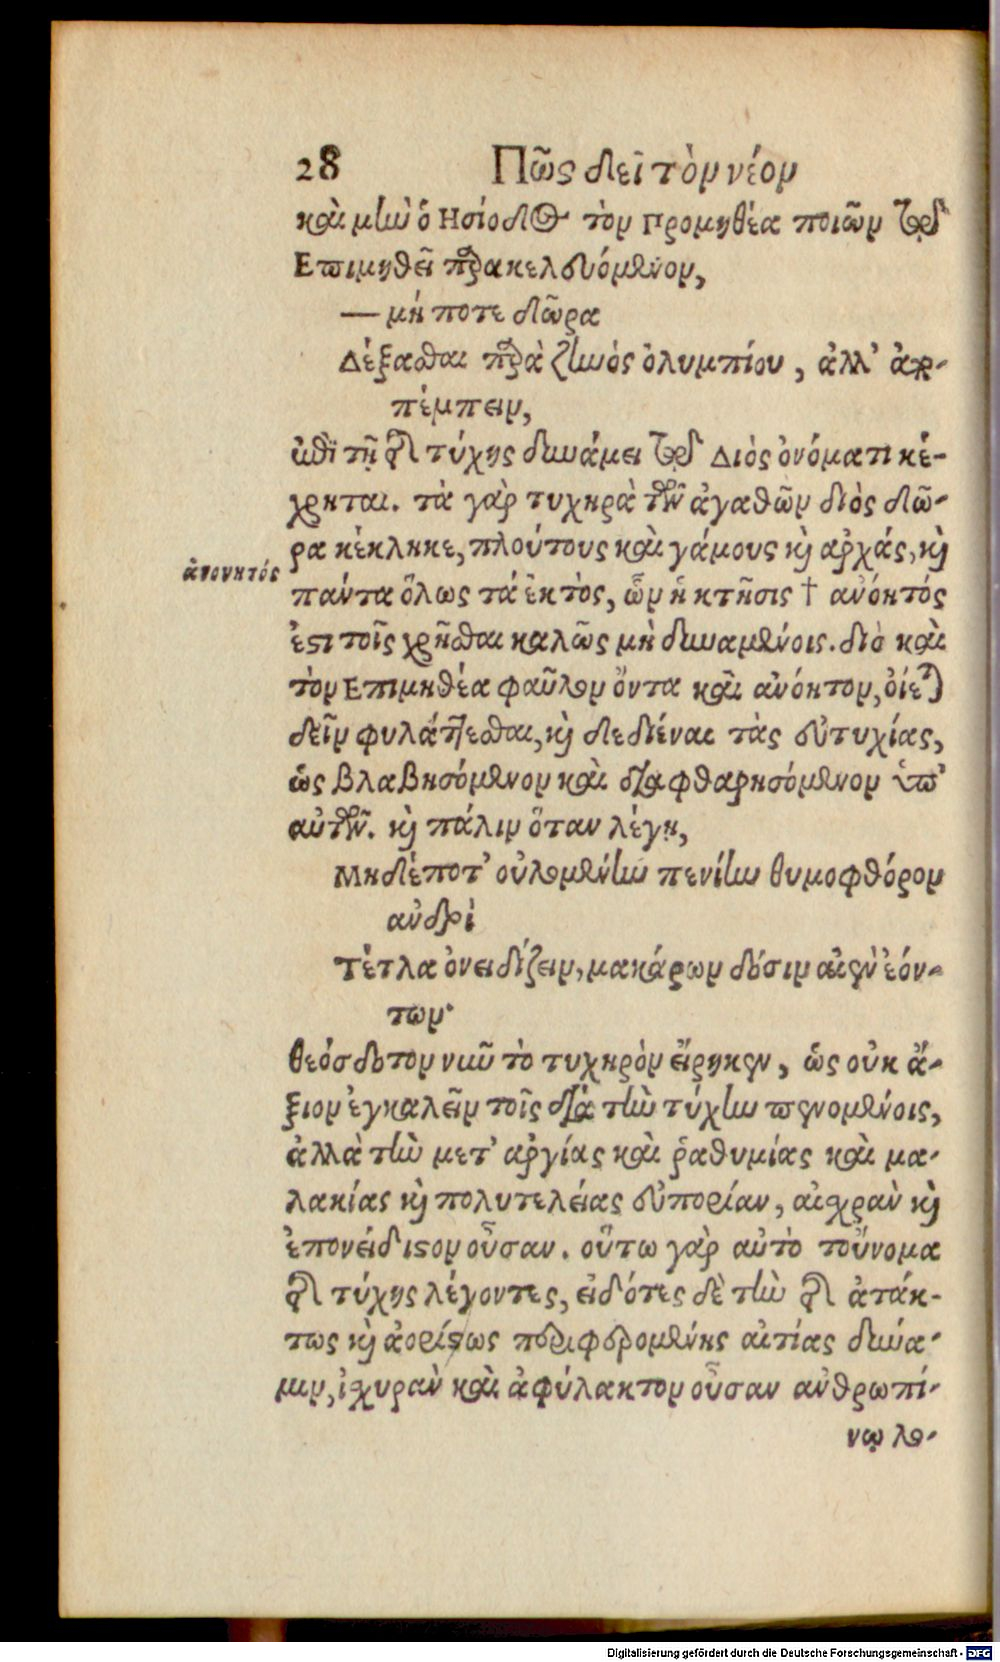 28 Πῶς δεῖ τὸν νέον
καὶ μὴν ὁ Ησίοδος τὸν Προμηθέα ποιῶν τῷ
Επιμηθεῖ παρακελευόμενον,
— μή ποτε δῶρα
Δέξασθαι παρὰ ζηνὸς ὀλυμπίου, ἀλλ' ἀπο-
πέμπειν,
ἐπὶ τῇ τῆς τύχης δυνάμει τῷ Διὸς ὀνόματι κέ-
χρηται. τὰ γὰρ τυχηρὰ τῶν ἀγαθῶν διὸς δῶ-
ρα κέκληκε, πλούτους καὶ γάμους καὶ ἀρχάς, καὶ
ἀνονητός
πάντα ὅλως τά ἐκτὸς, ὧν ἡ κτῆσις † ἀνόητός
ἐστι τοῖς χρῆσθαι καλῶς μὴ δυναμένοις. διὸ καὶ
τὸν Επιμηθέα φαῦλον ὄντα καὶ ἀνόητον, οἴεται
δεῖν φυλάττεσθαι, καὶ δεδιέναι τὰς εὐτυχίας,
ὡς βλαβησόμενον καὶ διαφθαρησόμενον ὑπ'
αὐτῶν. καὶ πάλιν ὅταν λέγῃ,
Μηδέποτ' οὐλομένην πενίην θυμοφθόρον
ἀνδρὶ
Τέτλα ὀνειδίζειν, μακάρων δόσιν αἰὲν ἐόν-
των·
θεόσδοτον νῦν τὸ τυχηρὸν εἴρηκεν, ὡς οὐκ ἄ-
ξιον ἐγκαλεῖν τοῖς διὰ τὴν τύχην πενομένοις,
ἀλλὰ τὴν μετ' ἀργίας καὶ ῥαθυμίας καὶ μα-
λακίας καὶ πολυτελείας εὐπορίαν, αἰσχρὰν καὶ
ἐπονείδιστον οὖσαν. οὕτω γὰρ αὐτὸ τοὔνομα
τῆς τύχης λέγοντες, εἰδότες δὲ τὴν τῆς ἀτάκ-
τως καὶ ἀορίστως περιφερομένης αἰτίας δύνα-
μιν, ἰσχυρὰν καὶ ἀφύλακτον οὖσαν ἀνθρωπί-
νῳ λο-
Digitalisierung gefördert durch die Deutsche Forschungsgemeinschaft - DFG